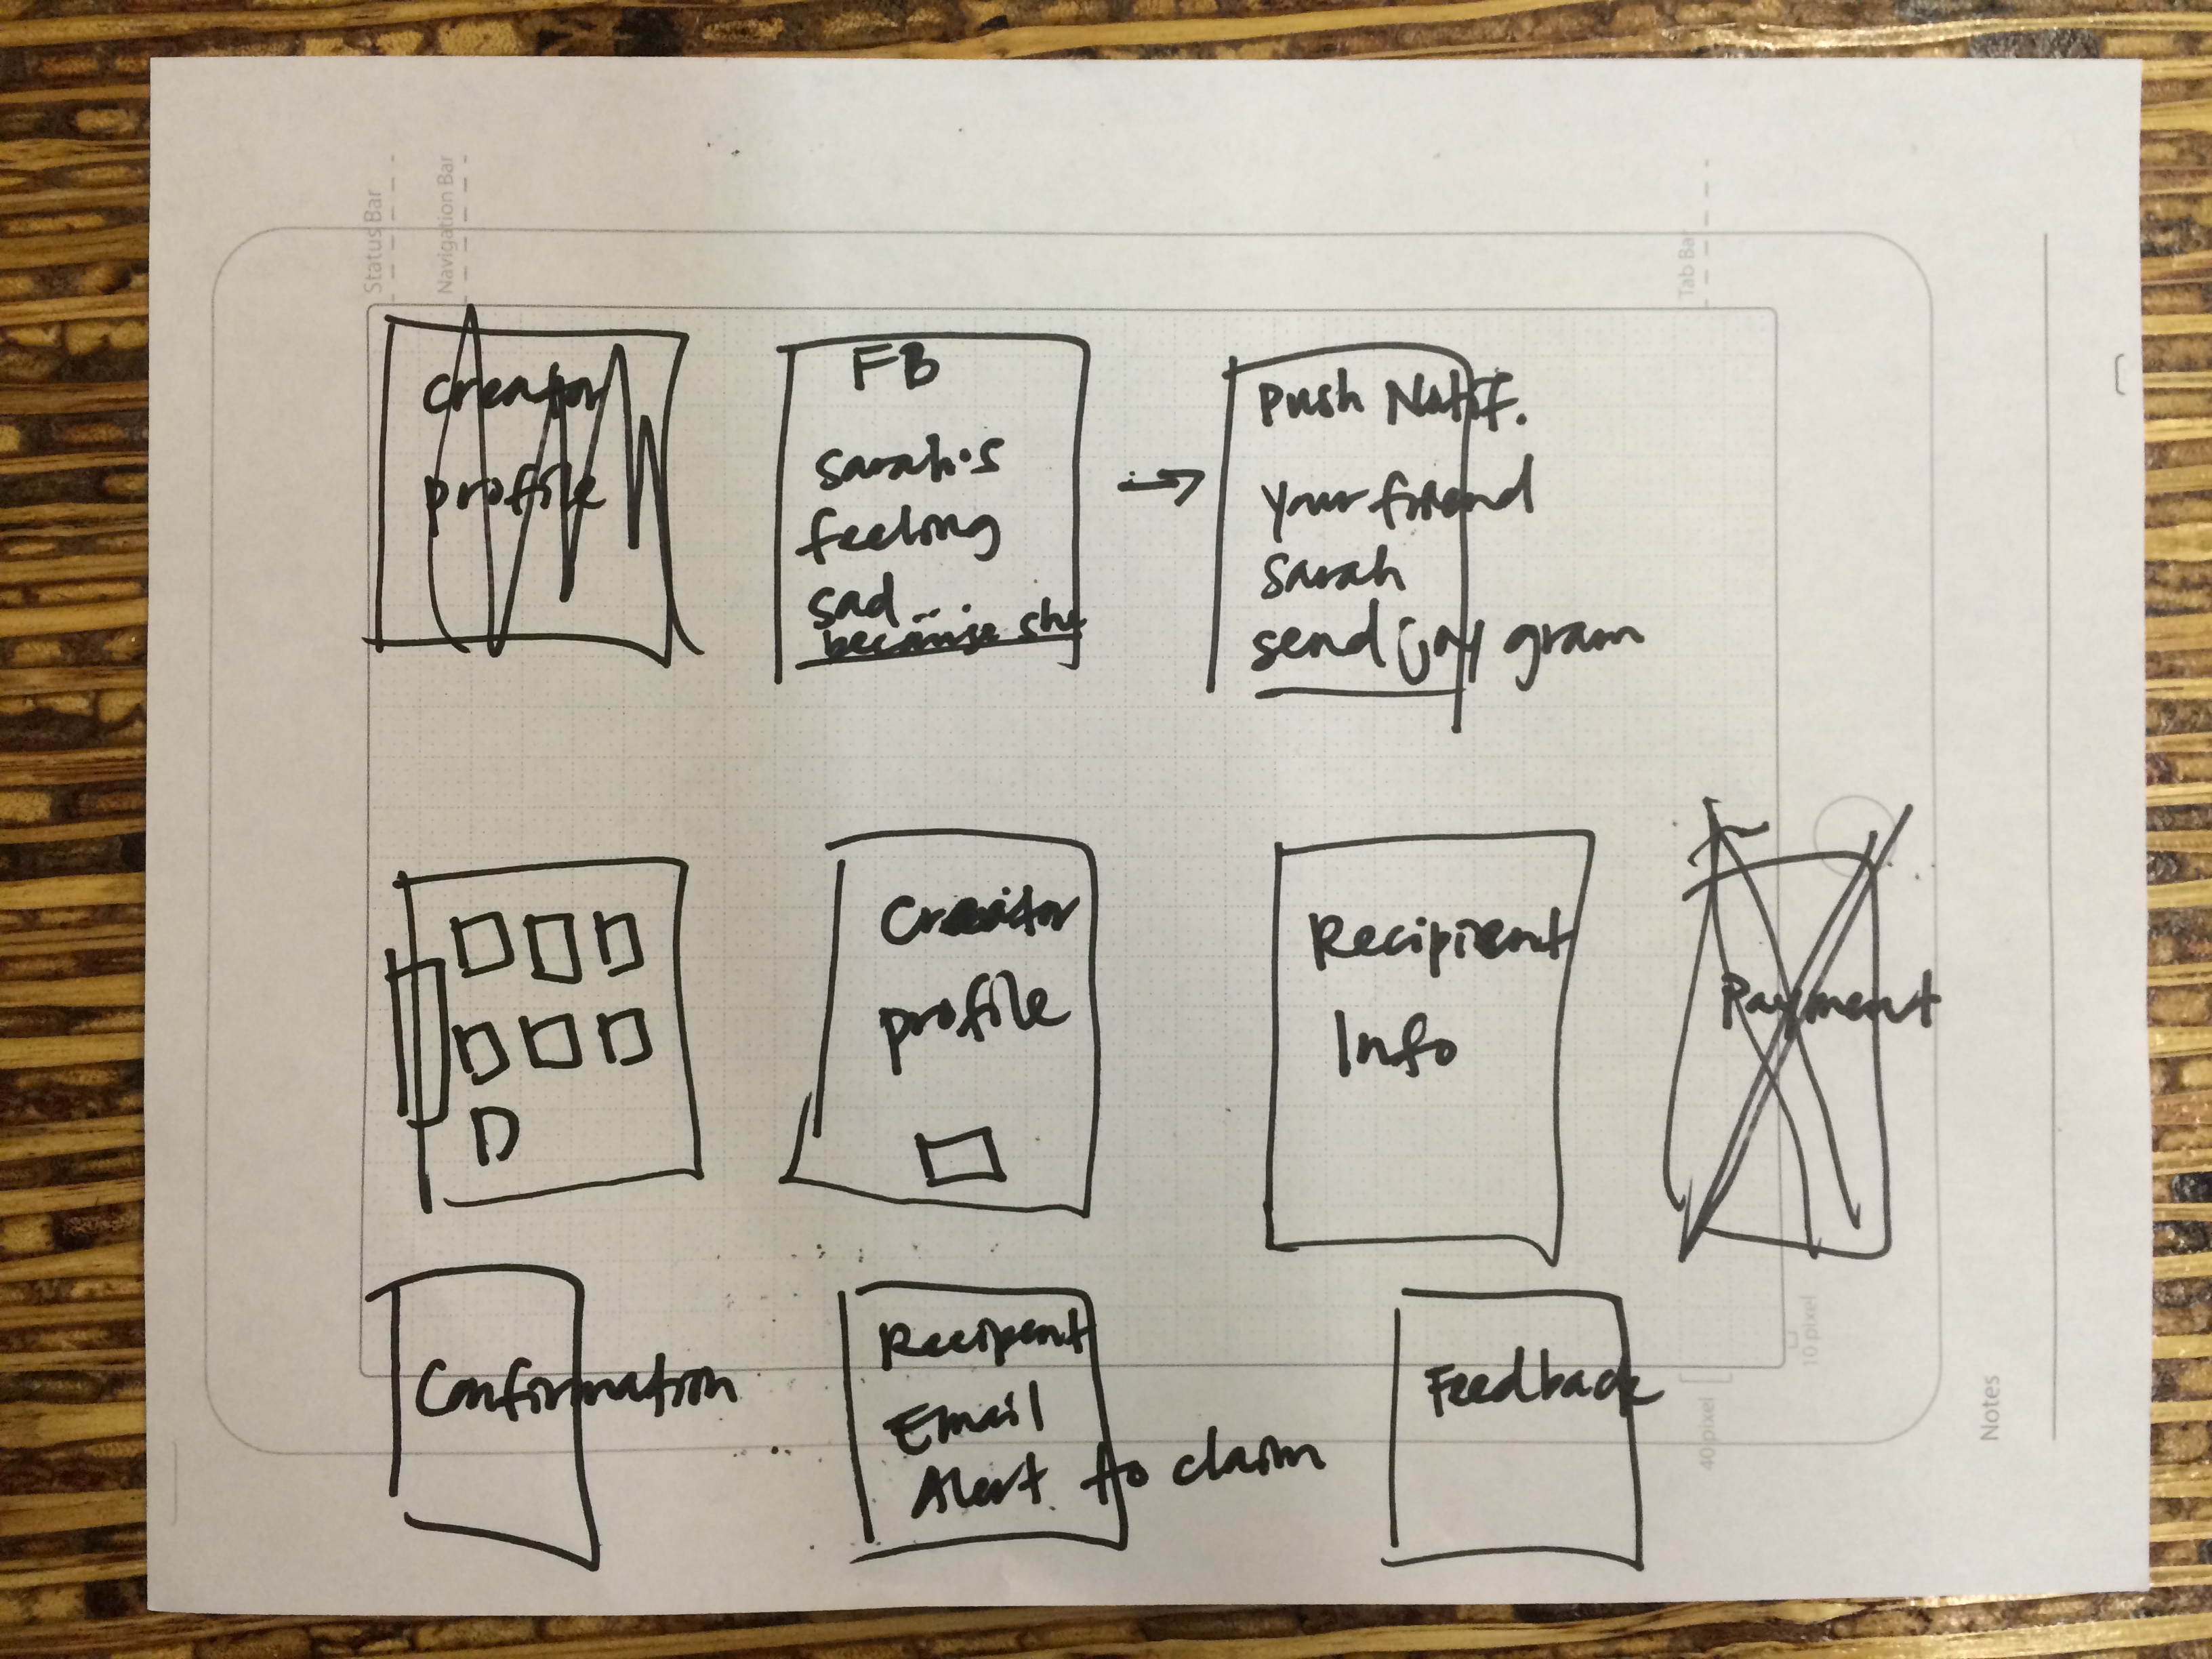 Status Bar
Navigation Bar
Tab Bar
creator
profile
FB
Sarah's
feeling
sad...
because she
Push Notif.
your friend
Sarah
send joy gram
Creator
profile
Recipient
Info
Payment
Confirmation
Recipent
Email
Alert to claim
Feedback
10 pixel
40 pixel
Notes